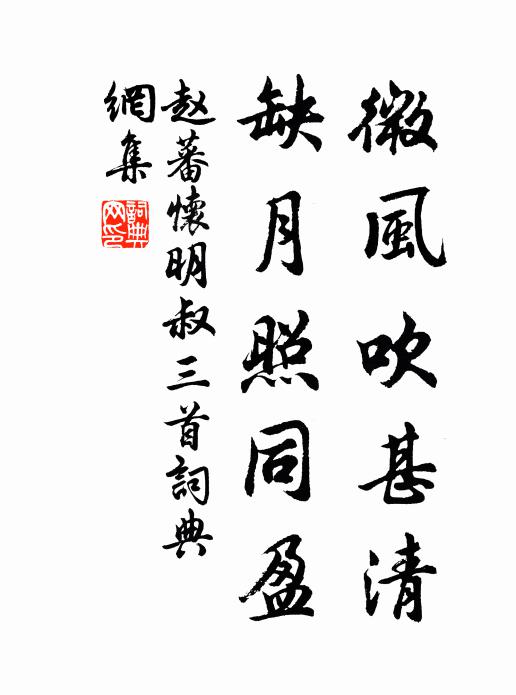 微風吹甚清
缺月照同盈
赵蕃懷明叔三首詞典
網集
詞典网印